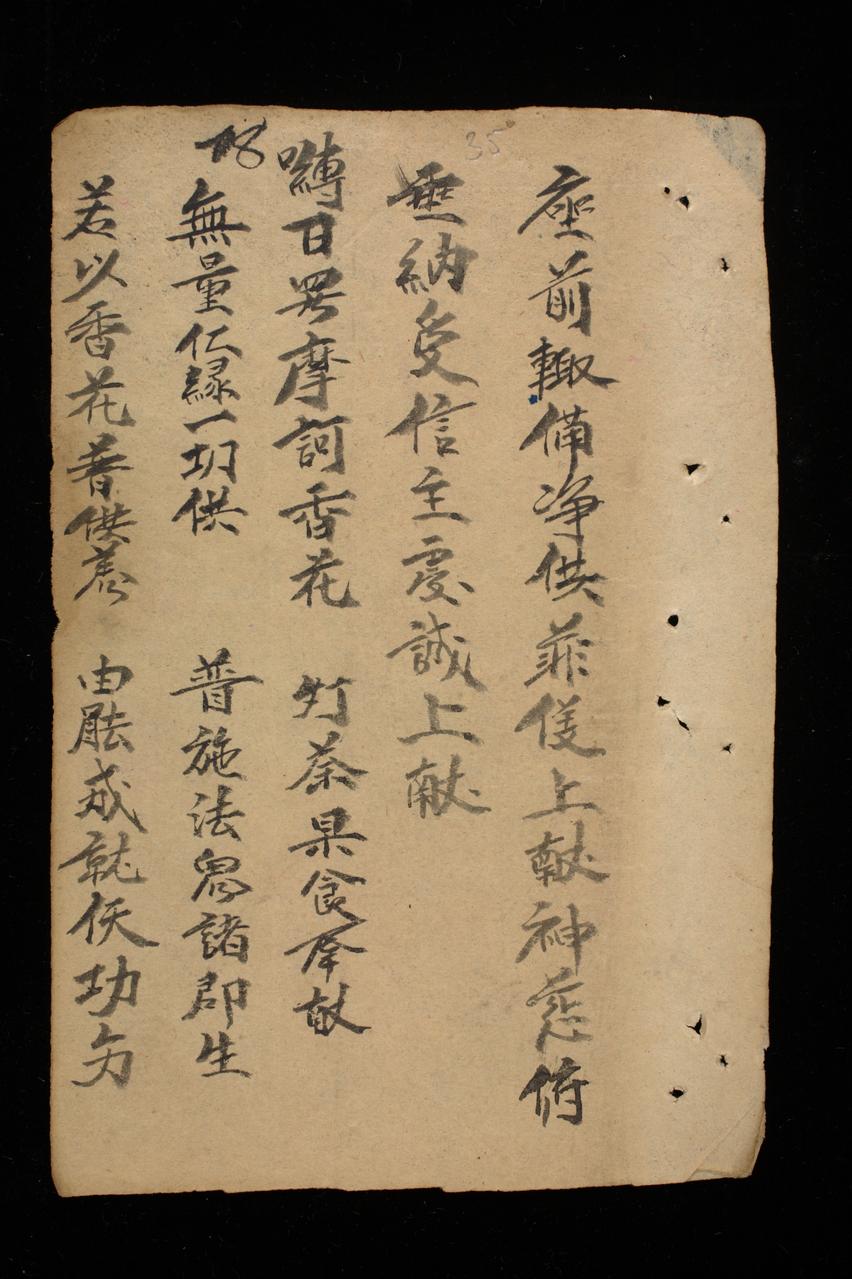 35
座前輙備净供菲仪上献神慈俯
垂納受信主虔誠上献
嚩日羅摩訶香花 灯茶果食奉献
無量仁緣一切供 普施法界諸郡生
若以香花普供养 由能成就佛功